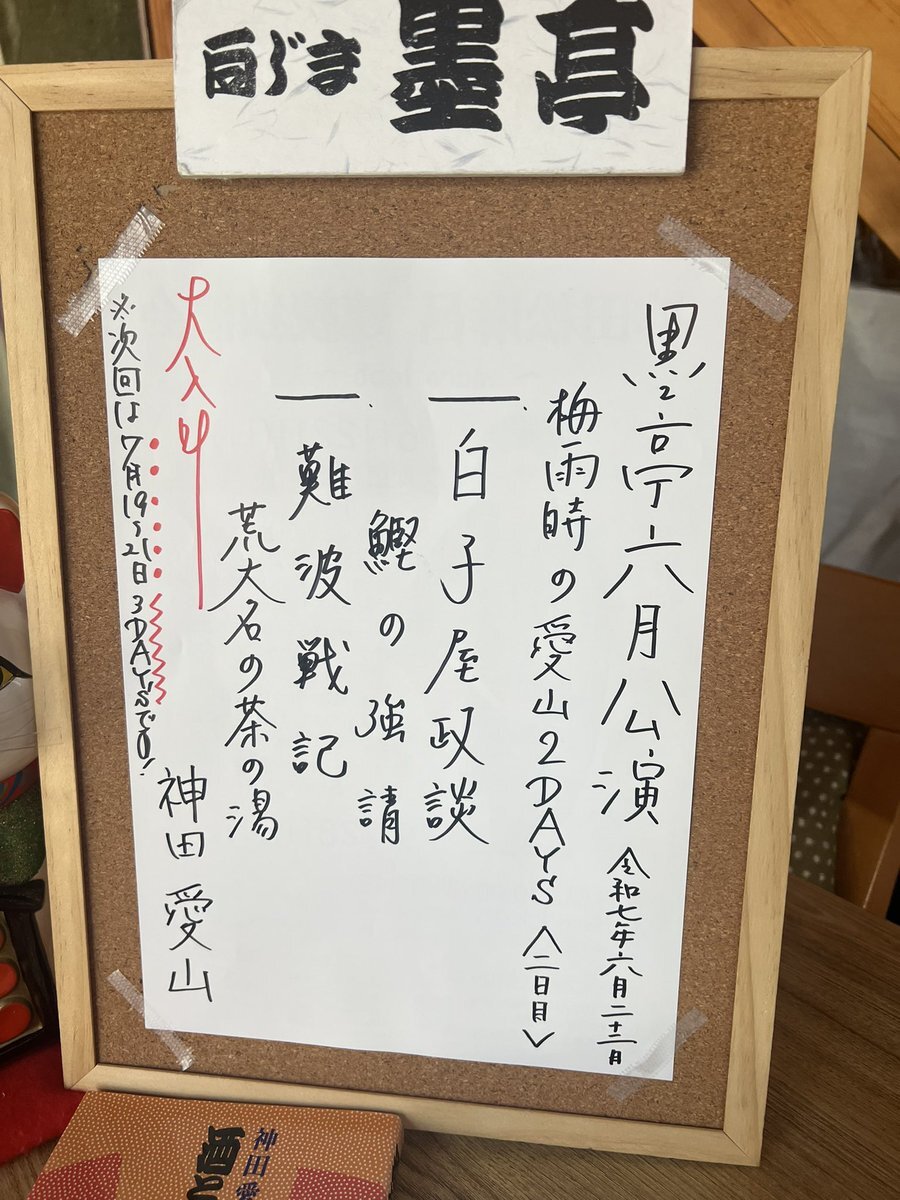 向じま 墨亭
墨亭六月公演 令和七年六月二十二日
梅雨時の愛山2DAYS 〈二日目〉
一、白子屋政談
鰹の強請
一、難波戦記
荒大名の茶の湯
大入叶
神田愛山
※次回は7月19〜21日3DAYSです!
神田愛